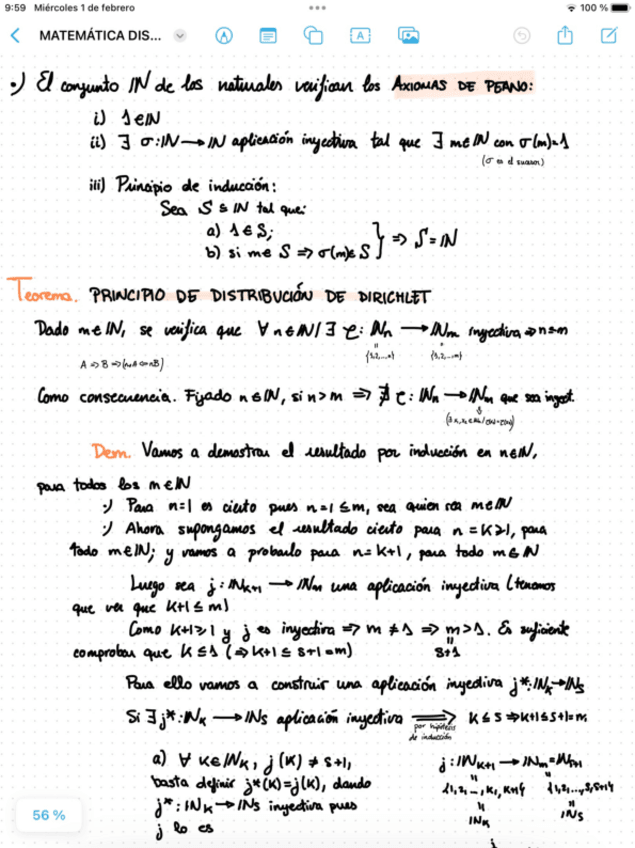 9:59 Miércoles 1 de febrero
100 %
MATEMÁTICA DIS...
•) El conjunto ℕ de los naturales verifican los AXIOMAS DE PEANO:
i) 1∈ℕ
ii) ∃ σ:ℕ→ℕ aplicación inyectiva tal que ∃ m∈ℕ con σ(m)=1
(σ es el sucesor)
iii) Principio de inducción:
Sea S ⊆ ℕ tal que:
a) 1∈S;
b) si m∈S ⇒ σ(m)∈S } ⇒ S=ℕ
Teorema. PRINCIPIO DE DISTRIBUCIÓN DE DIRICHLET
Dado m∈ℕ, se verifica que ∀ n∈ℕ/∃ φ: ℕn → ℕm inyectiva ⇒ n≤m
{1,2,...,n} {1,2,...,m}
A ⇒ B
Como consecuencia. Fijado n∈ℕ, si n>m ⇒ ∄ φ: ℕn → ℕm que sea inyect.
Dem. Vamos a demostrar el resultado por inducción en n∈ℕ,
para todos los m∈ℕ
·) Para n=1 es cierto pues n=1≤m, sea quien sea m∈ℕ
·) Ahora supongamos el resultado cierto para n=K≥1, para
todo m∈ℕ; y vamos a probarlo para n=K+1, para todo m∈ℕ
Luego sea j: ℕK+1 → ℕm una aplicación inyectiva (tenemos
que ver que K+1≤m)
Como K+1≥1 y j es inyectiva ⇒ m≠1 ⇒ m>1. Es suficiente
comprobar que K≤1 (⇒K+1≤s+1=m) s+1
Para ello vamos a construir una aplicación inyectiva j*:ℕK→ℕs
Si ∃j*:ℕK → ℕs aplicación inyectiva ⇒ K≤s⇒K+1≤s+1=m
por hipótesis
de inducción
a) ∀ K∈ℕK, j(K)≠s+1,
basta definir j*(K)=j(K), dando
j*:ℕK→ℕs inyectiva pues
j lo es
j:ℕK+1→ℕm=ℕs+1
{1,2,...,K,K+1} {1,2,...,s,s+1}
ℕK ℕs
56 %